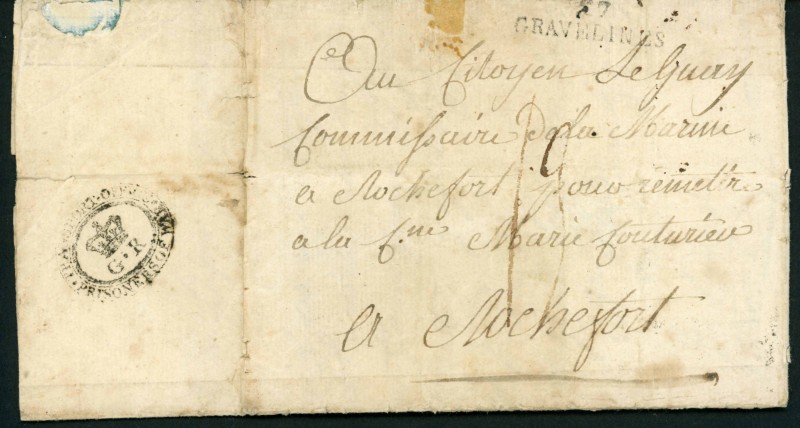 GRAVELINES
Au Citoyen LeGuay
Commissaire De la Marine
a Rochefort pour remetre
a la C.ne Marie Couturier
a Rochefort
PRISONERS OF WAR
G·R